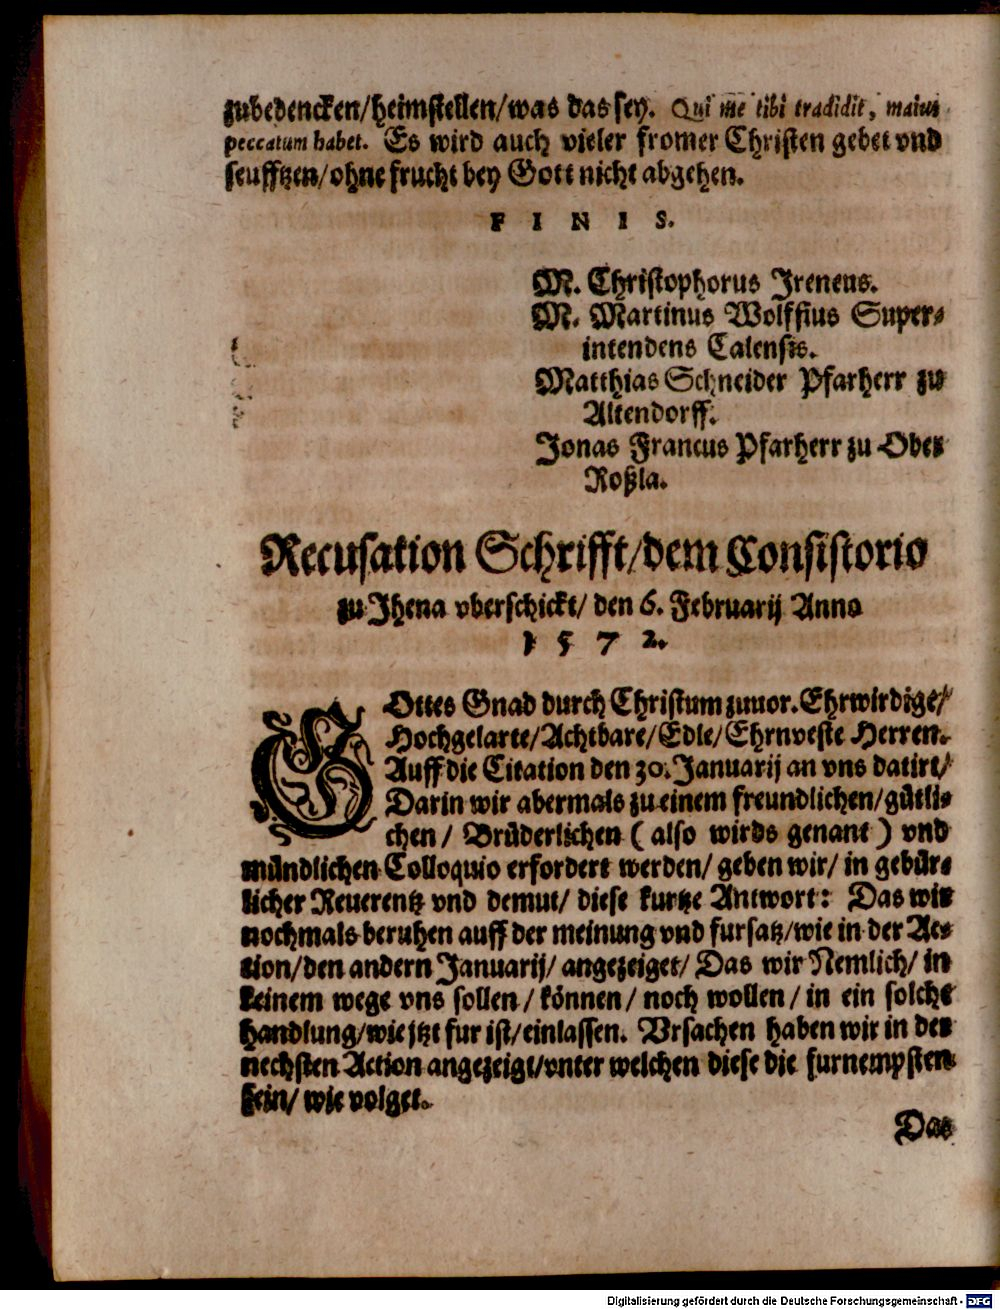 zubedencken/heimstellen/was das sey. Qui me tibi tradidit, maius
peccatum habet. Es wird auch vieler fromer Christen gebet vnd
seufftzen/ohne frucht bey Gott nicht abgehen.
FINIS.
M. Christophorus Jreneus.
M. Martinus Wolffius Super-
intendens Calensis.
Matthias Schneider Pfarherr zu
Altendorff.
Jonas Francus Pfarherr zu Ober
Roßla.
Recusation Schrifft/dem Consistorio
zu Jhena vberschickt/ den 6. Februarij Anno
1572.
GOttes Gnad durch Christum zuuor. Ehrwirdige/
Hochgelarte/Achtbare/Edle/Ehrnveste Herren.
Auff die Citation den 30. Januarij an vns datirt/
Darin wir abermals zu einem freundlichen/gütli-
chen/ Brüderlichen ( also wirds genant ) vnd
mündlichen Colloquio erfordert werden/ geben wir/ in gebür-
licher Reuerentz vnd demut/ diese kurtze Antwort: Das wir
nochmals beruhen auff der meinung vnd fursatz/wie in der Ac-
tion/den andern Januarij/ angezeiget/ Das wir Nemlich/ in
keinem wege vns sollen/ können/ noch wollen/ in ein solche
handlung/wie jtzt fur ist/einlassen. Vrsachen haben wir in der
nechsten Action angezeigt/vnter welchen diese die furnempsten
sein/ wie volget.
Das
Digitalisierung gefördert durch die Deutsche Forschungsgemeinschaft - DFG